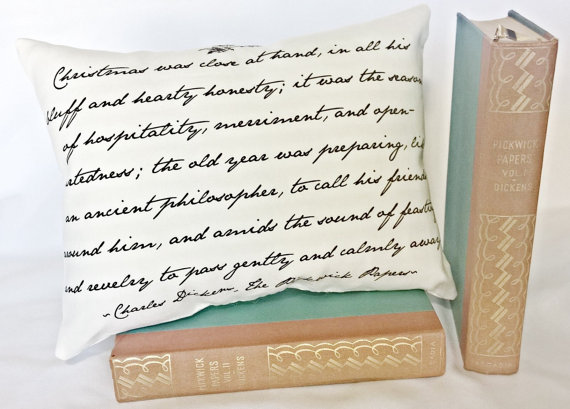 Christmas was close at hand, in all his
bluff and hearty honesty; it was the season
of hospitality, merriment, and open-
rtedness; the old year was preparing, li
an ancient philosopher, to call his friends
round him, and amids the sound of feasting
and revelry to pass gently and calmly away
~Charles Dickens, The Pickwick Papers~
PICKWICK
PAPERS
VOL II
DICKENS
PICKWICK
PAPERS
VOL I
DICKENS